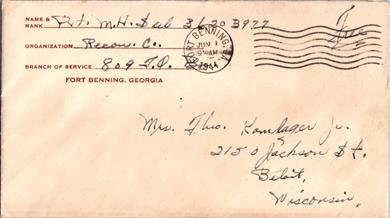 NAME & RANK Pvt. M.H. 36203977
Free
ORGANIZATION Recon. Co.
FORT BENNING, GA.
JUN 1
9 AM
1944
BRANCH OF SERVICE 809 T.D. Bn.
FORT BENNING, GEORGIA
Mrs. Theo. Komlager Jr.
2150 Jackson St.
Beloit,
Wisconsin.